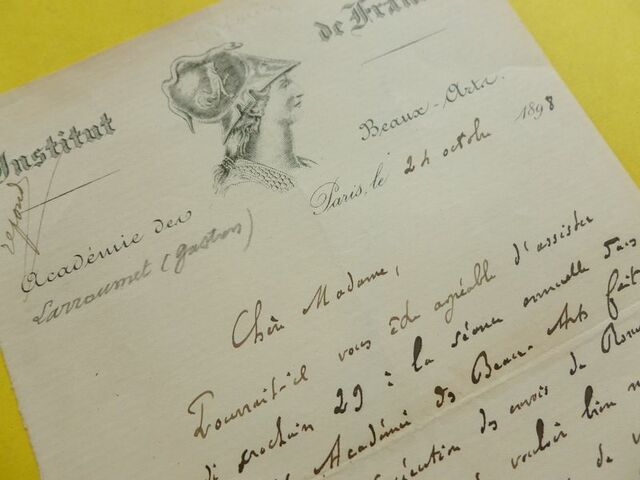 Institut de Fran
répond
Académie des Beaux-Arts.
Larroumet (Gaston)
Paris, le 24 octobre 1898
Chère Madame,
Pourrait-il vous être agréable d'assister
di prochain 29 à la séance annuelle
Académie des Beaux-Arts fait
exécution des envois de Rome
vouloir bien
de